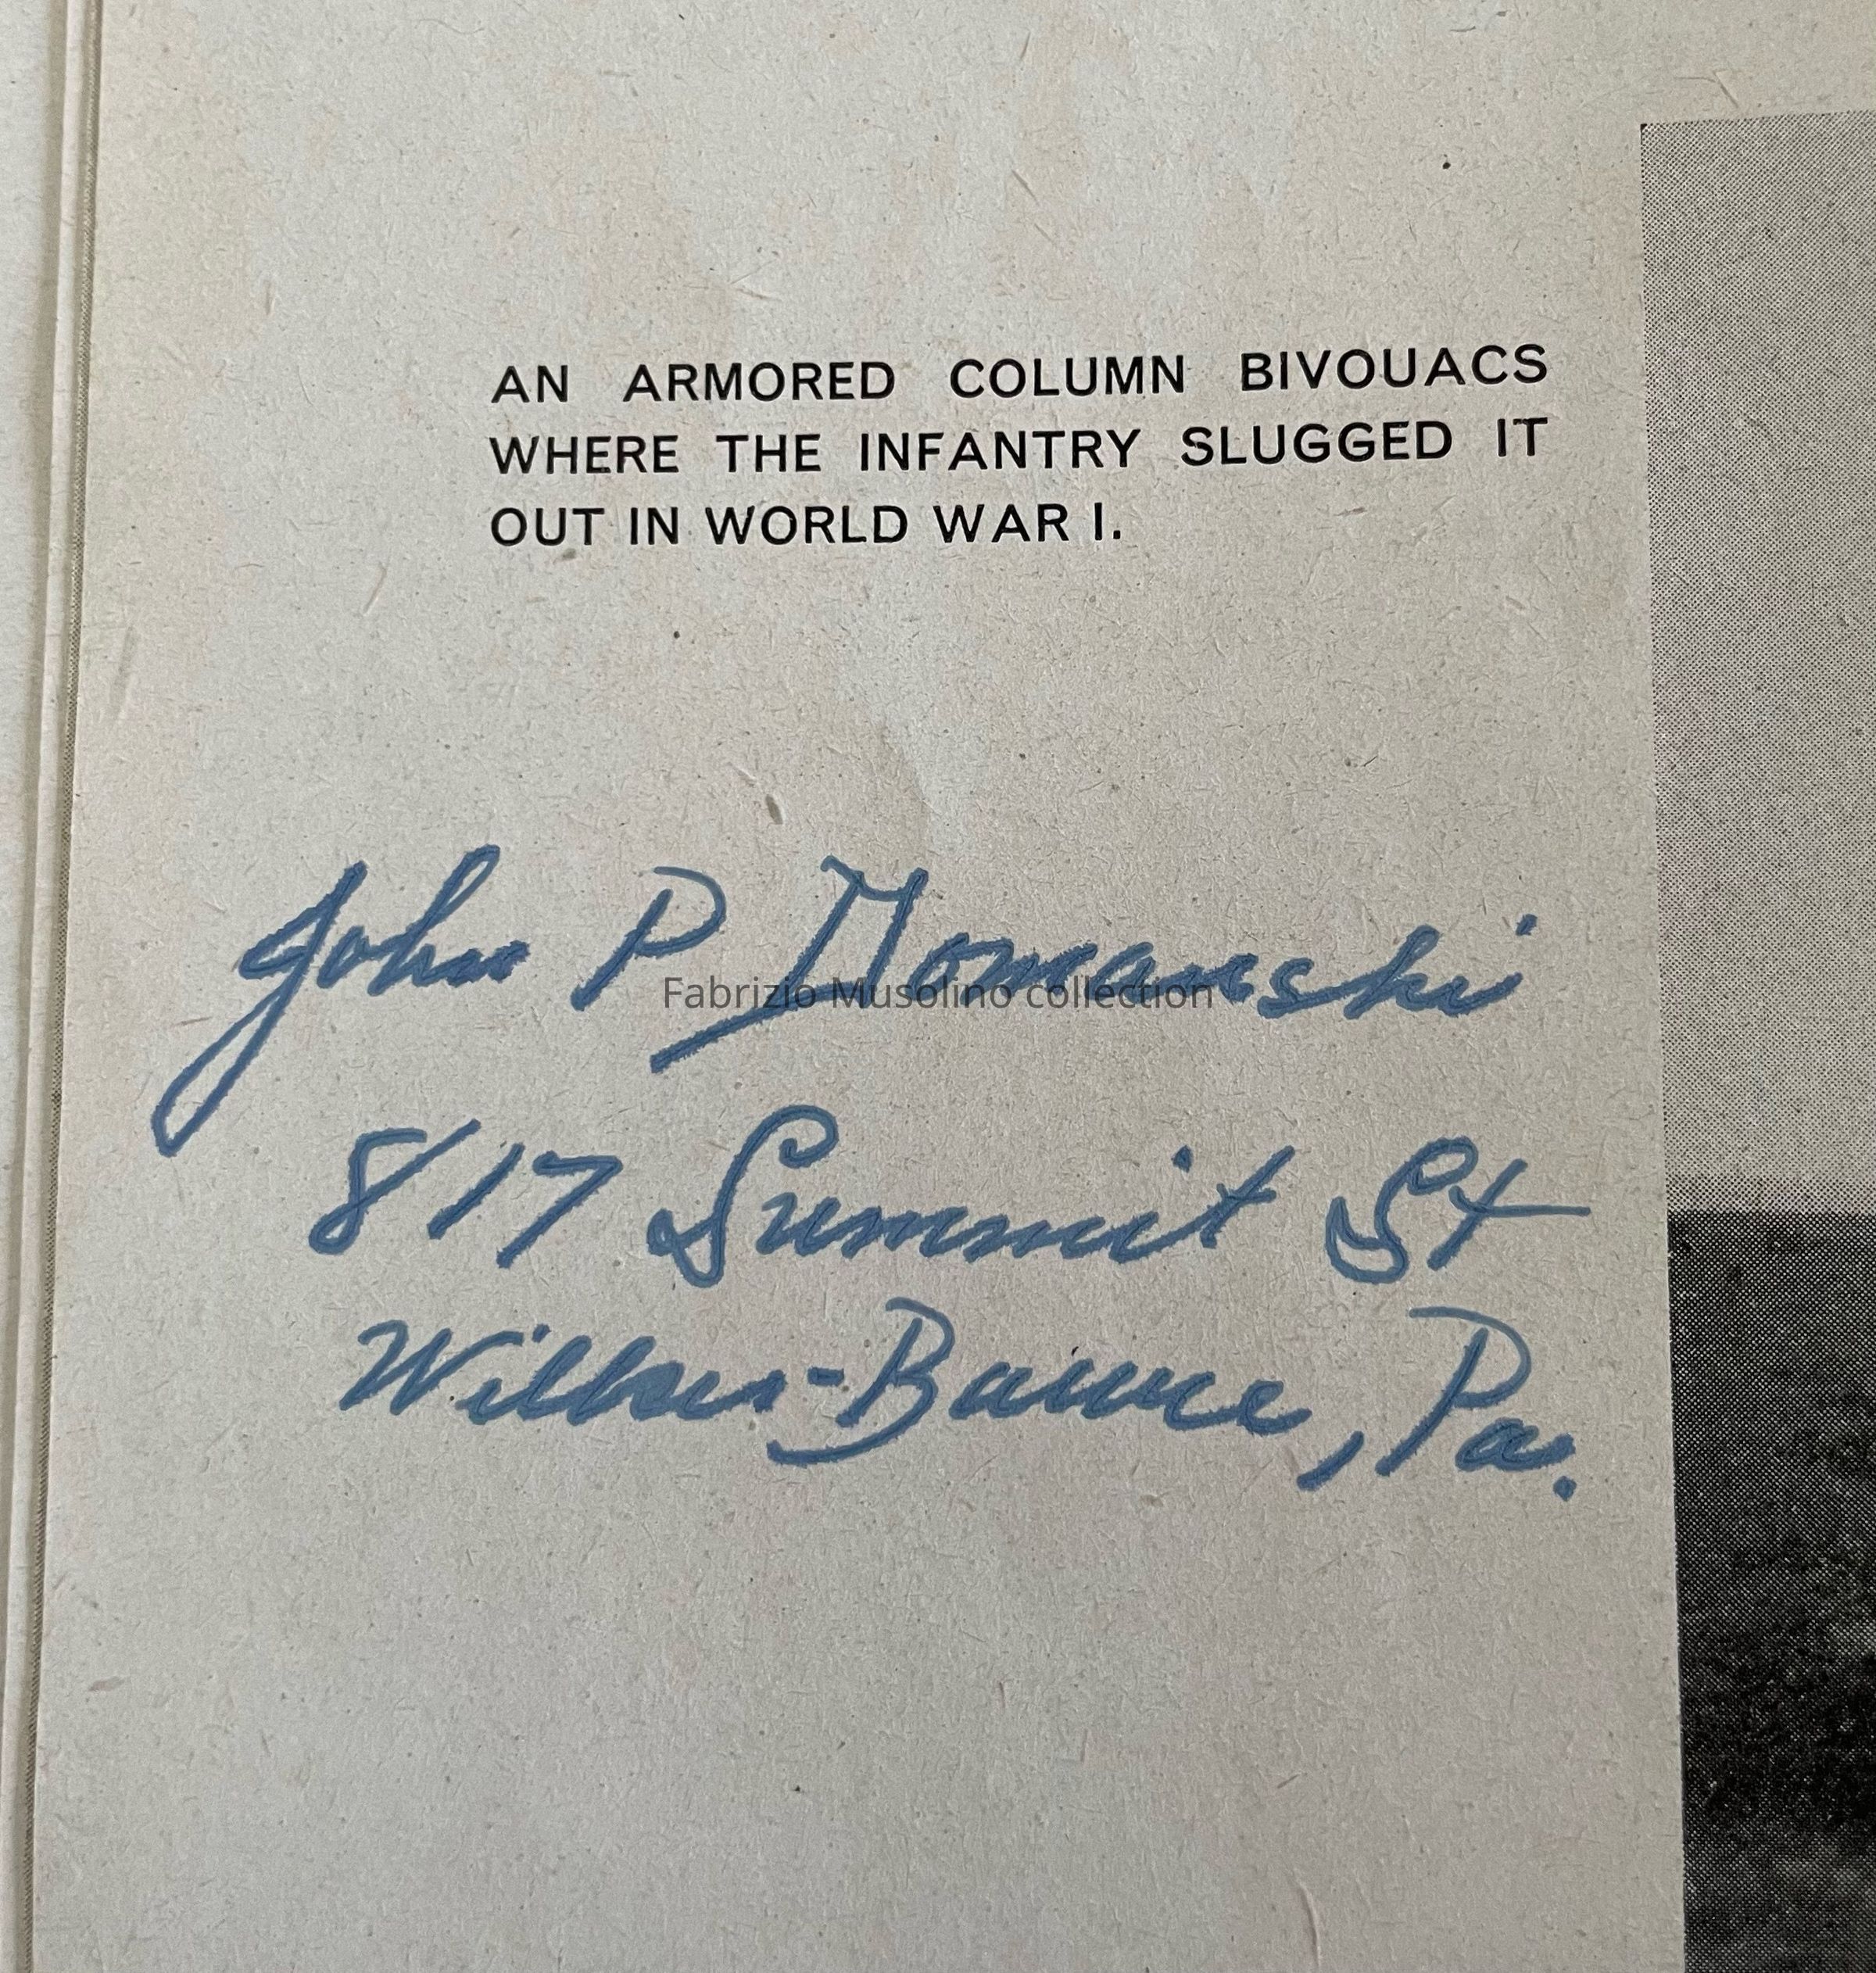 AN ARMORED COLUMN BIVOUACS
WHERE THE INFANTRY SLUGGED IT
OUT IN WORLD WAR I.
John P Domanski
Fabrizio Musolino collection
817 Summit St
Wilkes-Barre, Pa.